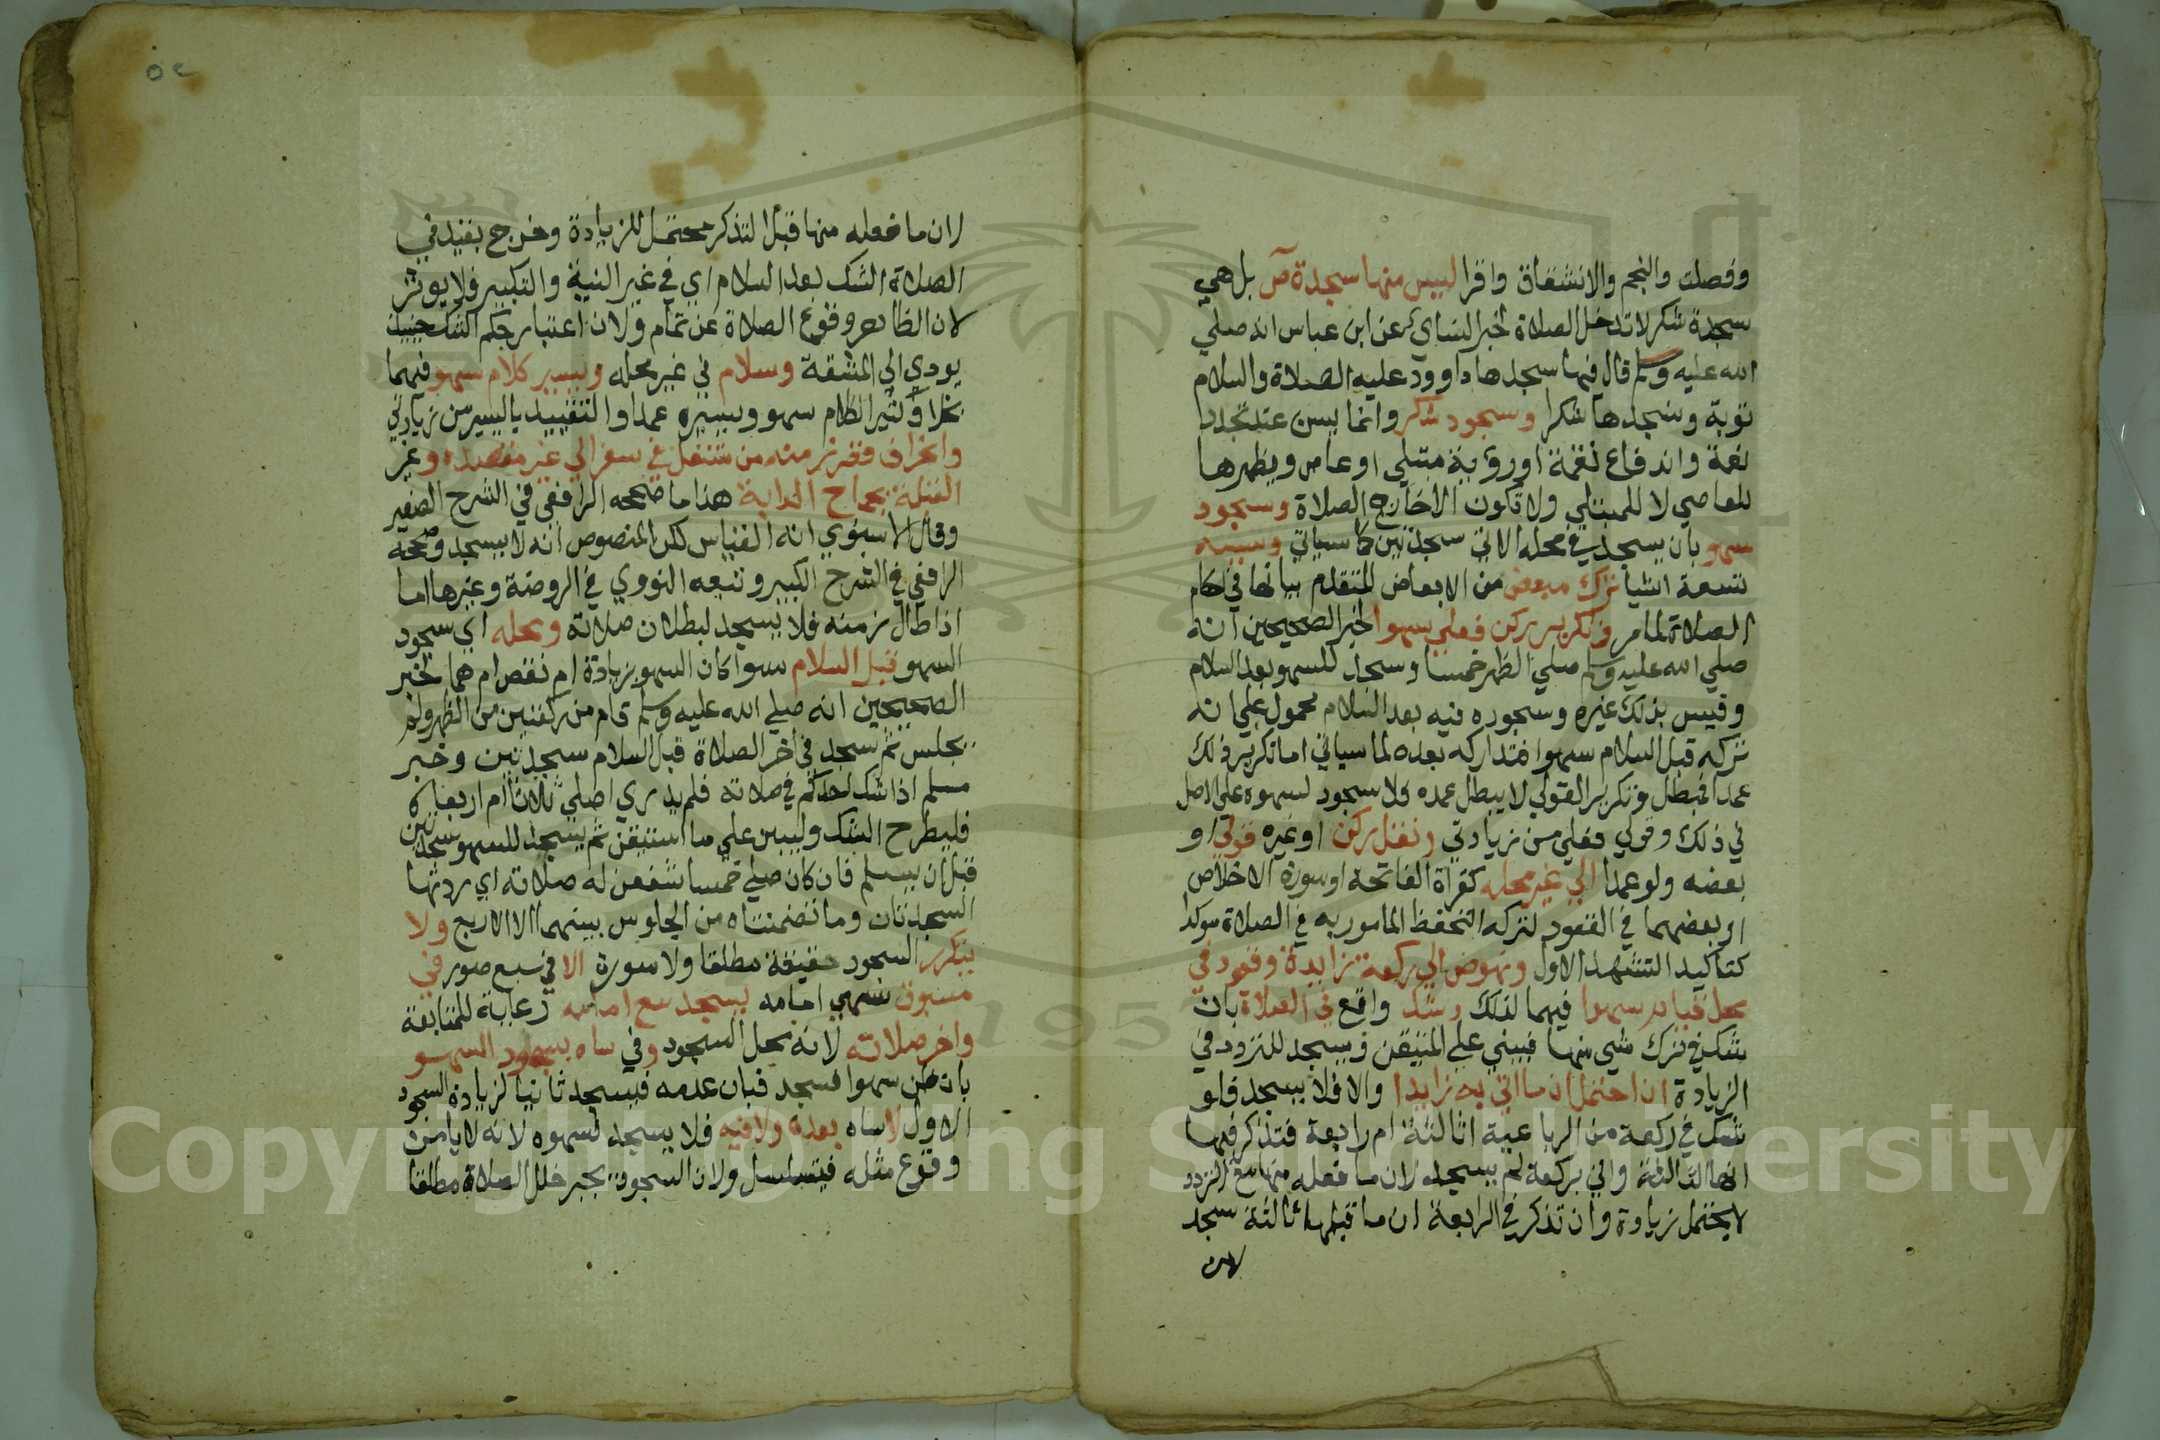 وفصلت والنجم والانشقاق واقرا ليس منها سجدة ص بل هي
سجدة شكر لا تدخل الصلاة لخبر النساي عن ابن عباس انه صلي
الله عليه وسلم قال فيها سجدها داوود عليه الصلاة والسلام
توبة ونسجدها شكرا وسجود شكر وانما يسن عند تجدد
نعمة واندفاع نقمة اورؤية مبتلي او عاص ويظهرها
للعاصي لا للمبتلي ولا تكون الا خارج الصلاة وسجود
سهو بان يسجد في محله الاتي سجدتين كما سياتي وسببه
تسعة اشيا ترك مبعض من الابعاض المتقدم بيانها في احكام
الصلاة لما مر وتكرير ركن فعلي سهوا لخبر الصحيحين انه
صلي الله عليه وسلم صلي الظهر خمسا وسجد للسهو بعد السلام
وقيس بذلك غيره وسجوده فيه بعد السلام محمول علي انه
تركه قبل السلام سهوا فتداركه بعده لما سياتي اما تكرير ذلك
عمدا فمبطل وتكرير القولي لا يبطل عمده فلا سجود لسهوه علي الاصل
في ذلك وقولي فعلي من زيادتي ونقل ركن او غيره قولي او
بعضه ولو عمدا الي غير محله كقراة الفاتحة او سورة الاخلاص
او بعضهما في القعود لتركه التحفظ المامور به في الصلاة موكدا
كتاكيد التشهد الاول ونهوض الي ركعة زايدة وقعود في
محل قيام سهوا فيهما لذلك وشك واقع في الصلاة بان
شك في ترك شي منها فيبني علي المتيقن ويسجد للتردد في
الزيادة ان احتمل ان ما اتي به زايدا والا فلا يسجد فلو
شك في ركعة من الرباعية اثالثة ام رابعة فتذكر فيها
انها الثالثة واتي بركعة لم يسجد لان ما فعله منها مع التردد
لا يحتمل زيادة وان تذكر في الرابعة ان ما قبلها ثالثة سجد
لان
٥٢
لان ما فعله منها قبل التذكر محتمل للزيادة وخرج بقيد في
الصلاة الشك بعد السلام اي في غير النية والتكبير فلا يوثر
لان الظاهر وقوع الصلاة عن تمام ولان اعتبار حكم الشك حينيذ
يودي الي المشقة وسلام في غير محله ويسير كلام سهو فيهما
بخلاف كثير الكلام سهو ويسيره عمدا والتقييد باليسير من زيادتي
وانحراف فخرز منه من متنفل في سفر الي غير مقصده وغير
القبلة بجماح الدابة هذا ما صححه الرافعي في الشرح الصغير
وقال الاسنوي انه القياس لكن المنصوص انه لا يسجد وصححه
الرافعي في الشرح الكبير وتبعه النووي في الروضة وغيرها اما
اذا طال زمنه فلا يسجد لبطلان صلاته ومحله اي سجود
السهو قبل السلام سوا كان السهو بزيادة ام نقص ام هما لخبر
الصحيحين انه صلي الله عليه وسلم قام من ركعتين من الظهر ولم
يجلس ثم سجد في اخر الصلاة قبل السلام سجدتين وخبر
مسلم اذا شك احدكم في صلاته فلم يدري اصلي ثلاثا ام اربعا
فليطرح الشك وليبن علي ما استيقن ثم يسجد للسهو سجدتين
قبل ان يسلم فان كان صلي خمسا شفعن له صلاته اي ردتها
السجدتان وما تضمنتاه من الجلوس بينهما الا الاربع ولا
يتكرر السجود حقيقة مطلقا ولا صورة الا في سبع صور في
مسبوق سهي امامه يسجد مع امامه رعاية للمتابعة
واخر صلاته لانه محل السجود وفي ساه بسجود السهو
بان ظن سهوا فسجد فبان عدمه فيسجد ثانيا لزيادة السجود
الاول لا ساه بعده ولا فيه فلا يسجد لسهوه لانه لا يامن
وقوع مثله فيتسلسل ولان السجود يجبر خلل الصلاة مطلقا